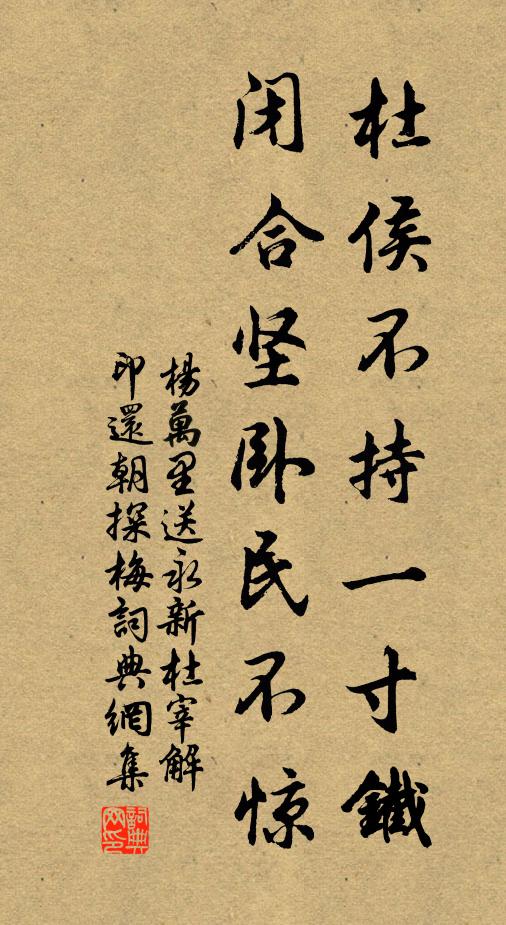 杜侯不持一寸鐵
闭合坚卧民不惊
楊萬里送永新杜宰解
印還朝探梅詞典網集
詞典网印